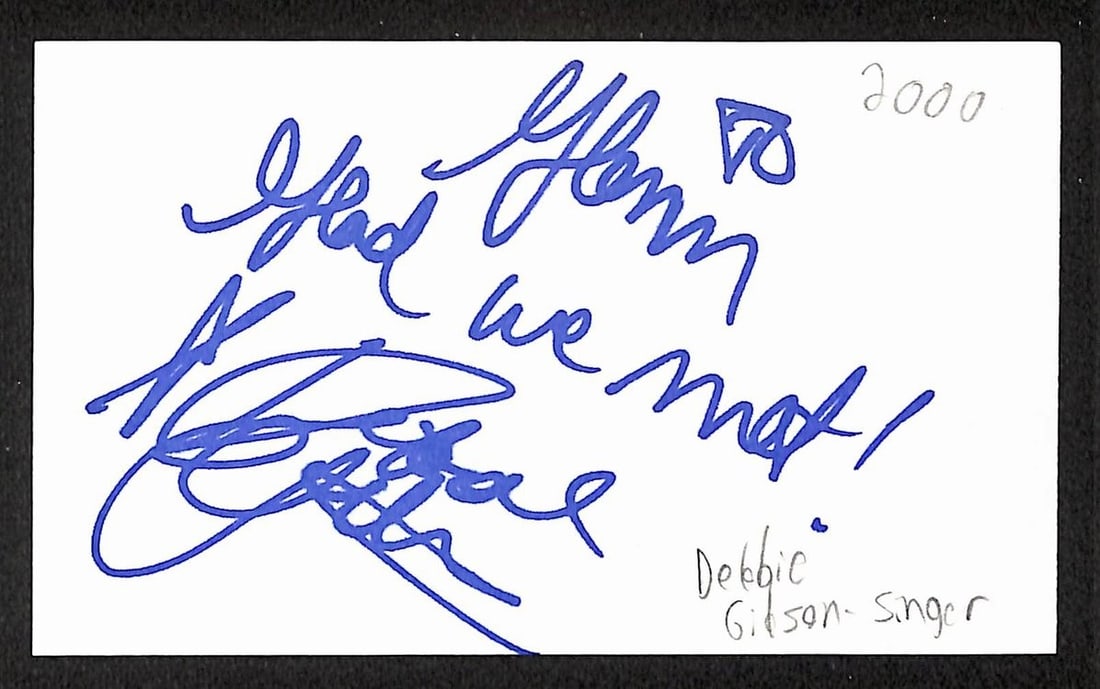 2000
To Glenn
Glad we met!
Debbie
Gibson - Singer